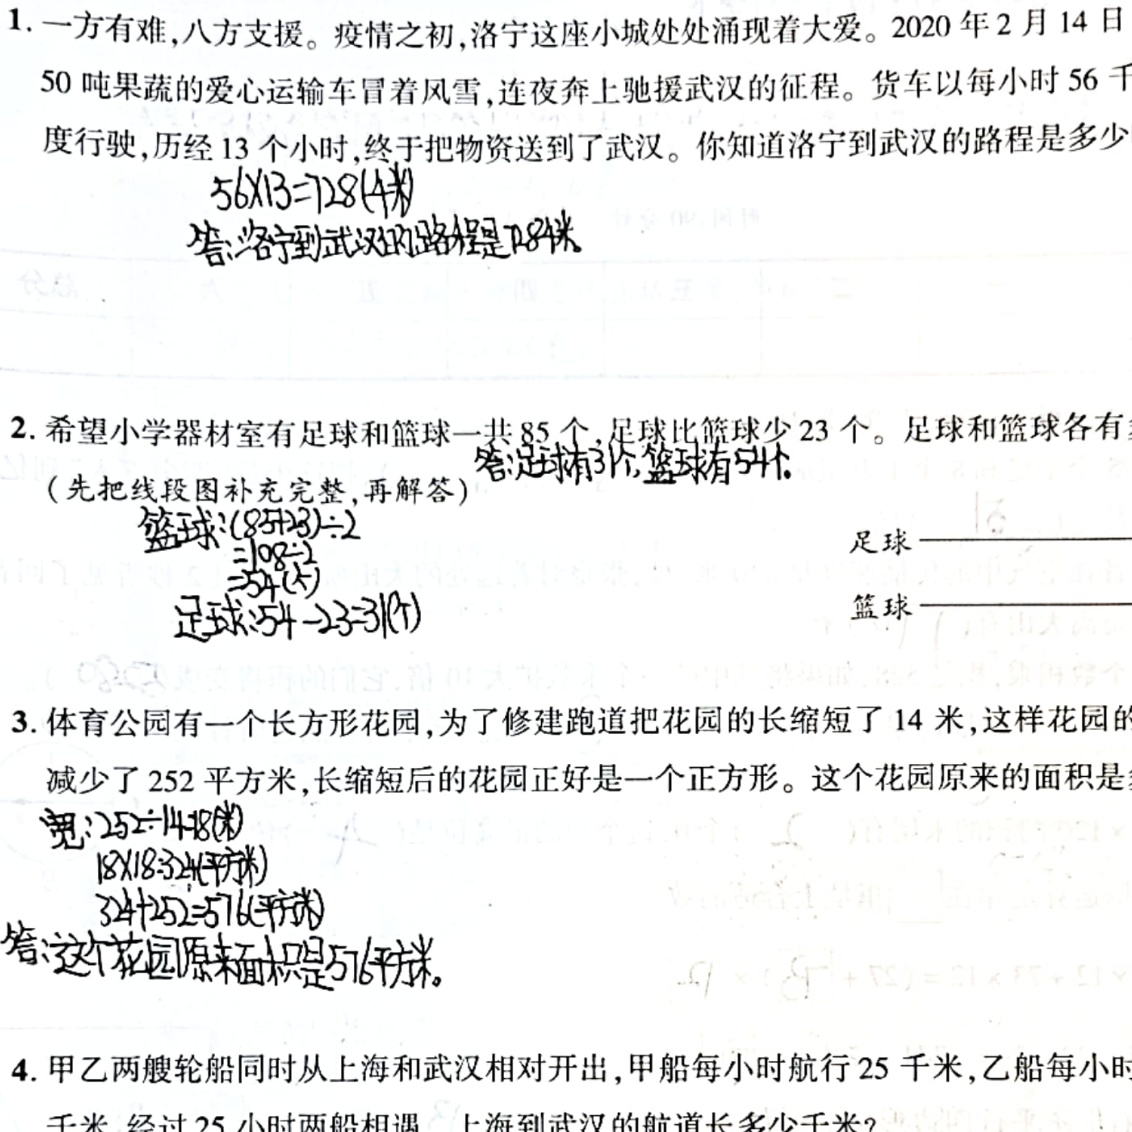 1. 一方有难,八方支援。疫情之初,洛宁这座小城处处涌现着大爱。2020 年 2 月 14 日
50 吨果蔬的爱心运输车冒着风雪,连夜奔上驰援武汉的征程。货车以每小时 56 千
度行驶,历经 13 个小时,终于把物资送到了武汉。你知道洛宁到武汉的路程是多少
56×13=728(千米)
答:洛宁到武汉的路程是728千米。
2. 希望小学器材室有足球和篮球一共 85 个,足球比篮球少 23 个。足球和篮球各有
答:足球有31个,篮球有54个。
(先把线段图补充完整,再解答)
篮球:(85+23)÷2
=108÷2
=54(个)
足球:54-23=31(个)
足球
篮球
3. 体育公园有一个长方形花园,为了修建跑道把花园的长缩短了 14 米,这样花园的
减少了 252 平方米,长缩短后的花园正好是一个正方形。这个花园原来的面积是
宽:252÷14=18(米)
18×18=324(平方米)
324+252=576(平方米)
答:这个花园原来面积是576平方米。
4. 甲乙两艘轮船同时从上海和武汉相对开出,甲船每小时航行 25 千米,乙船每小时
千米,经过 25 小时两船相遇。上海到武汉的航道长多少千米?